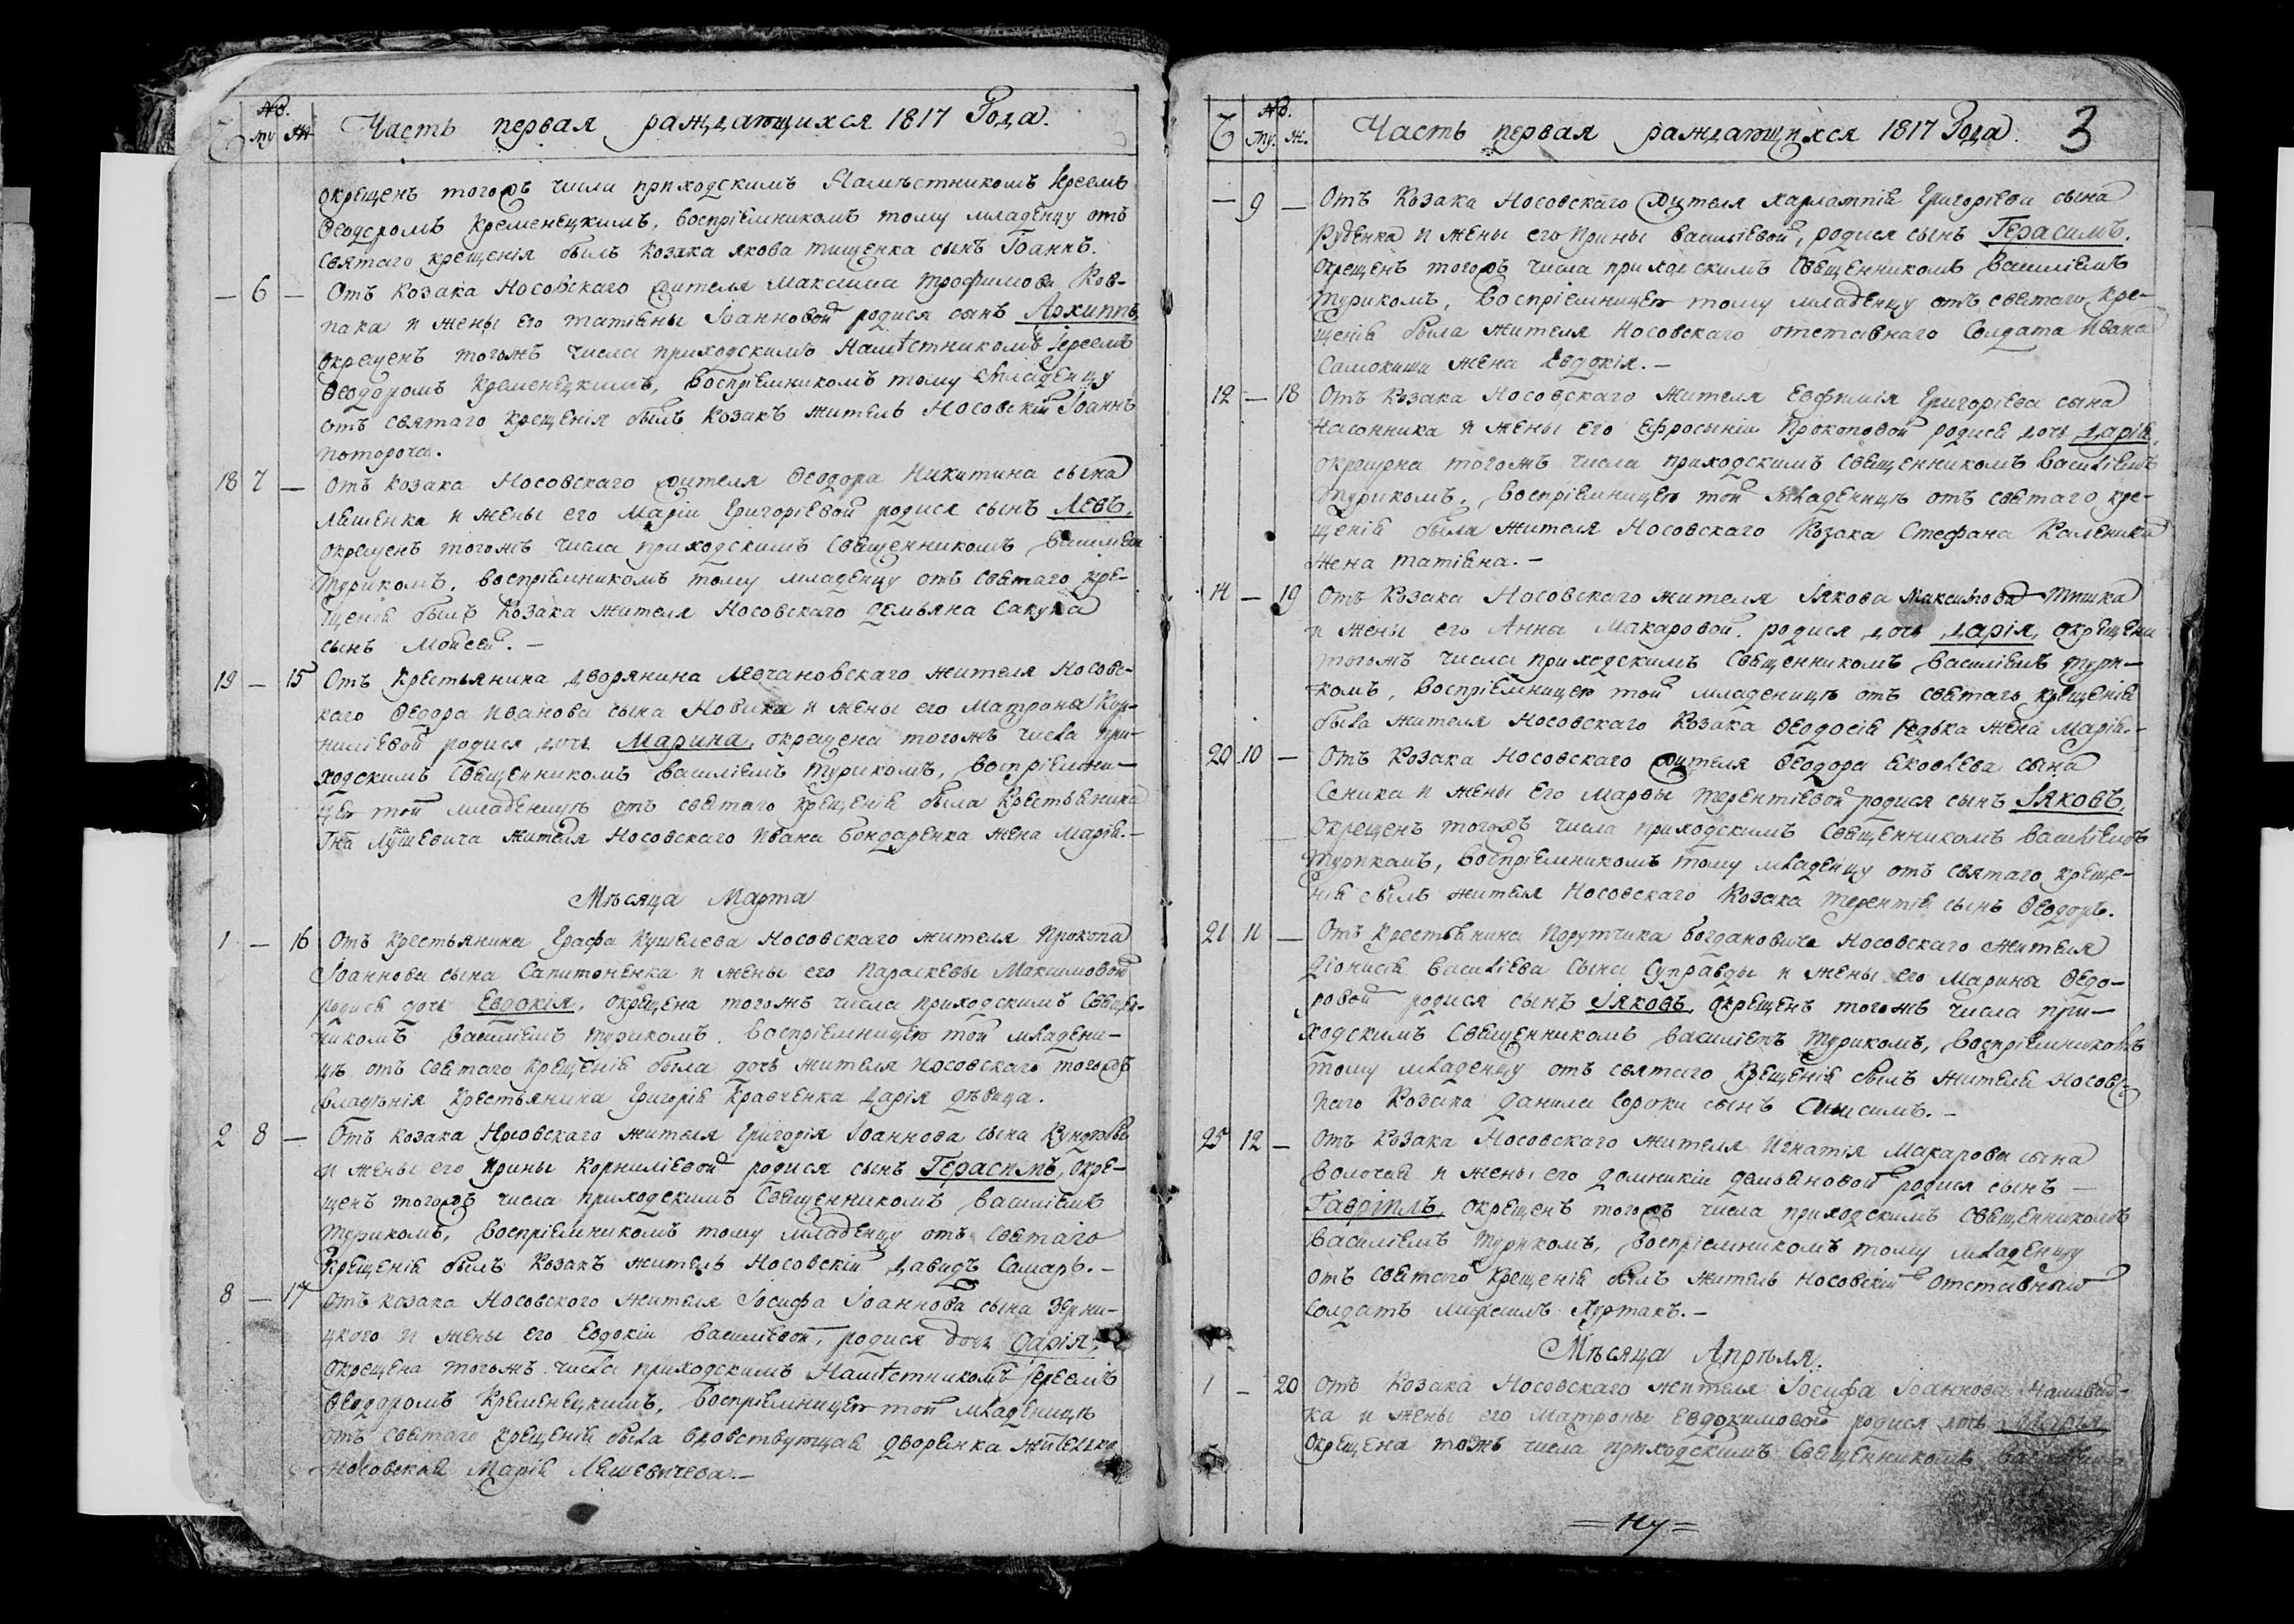 №.
му ж Часть первая раждающихся 1817 Года.
окрещенъ тогожъ числа приходскимъ Намѣстникомъ Іереемъ
Ѳеодоромъ Кременецкимъ, воспріемникомъ тому младенцу отъ
святаго крещенія былъ Козака якова тищенка сынъ Іоаннъ.
— 6 — Отъ Козака Носовскаго жителя Максима Трофимова Ков-
пака и жены его татіяны Іоанновой родися сынъ Архиппъ,
окрещенъ тогожъ числа приходскимъ Намѣстникомъ Іереемъ
Ѳеодоромъ Кременецкимъ, воспріемникомъ тому младенцу
отъ святаго крещенія былъ Козакъ житель Носовскій Іоаннъ
Потороча.
18 7 — отъ Козака Носовскаго жителя Ѳеодора Никитина сына
Ляшенка и жены его Маріи Григоріевой родися сынъ Левъ,
окрещенъ тогожъ числа приходскимъ священникомъ василіемъ
Турикомъ, воспріемникомъ тому младенцу отъ святаго кре-
щенія былъ Козака жителя Носовскаго демьяна Сакуна
сынъ Мойсей. —
19 — 15 Отъ Крестьянина дворянина Мочановскаго жителя Носовс-
каго Ѳедора Иванова сына Новика и жены его Матроны Кор-
ниліевой родися дочь Марина, окрещена тогожъ числа при-
ходскимъ Священникомъ василіемъ Турикомъ, воспріемни-
цею той младеницѣ отъ святаго крещенія была Крестьянина
Гна жителя Носовскаго Ивана Бондаренка жена Марія. —
Мѣсяца Марта
1 — 16 Отъ Крестьянина Графа Кушелева Носовскаго жителя Прокопа
Іоаннова сына Сапитоненка и жены его Параскевы Максимовой
родися дочь Евдокія, окрещена тогожъ числа приходскимъ Священ-
никомъ василіемъ Турикомъ. Воспріемницею той младени-
цѣ отъ святаго крещенія была дочь жителя Носовскаго тогожъ
владѣнія Крестьянина Григорія Кравченка Дарія дѣвица.
2 8 — Отъ Козака Носовскаго жителя Григорія Іоаннова сына
и жены его Ирины Корниліевой родися сынъ Герасимъ, окре-
щенъ тогожъ числа приходскимъ Священникомъ василіемъ
Турикомъ, воспріемникомъ тому младенцу отъ святаго
Крещенія былъ Козакъ житель Носовскій Давидъ Самарь. —
8 — 17 Отъ козака Носовского жителя Іосифа Іоаннова сына Зерни-
цкого и жены его Евдокіи василіевой, родися дочь Дарія,
окрещена тогожъ числа приходскимъ Намѣстникомъ Іереемъ
Ѳеодоромъ Кременецкимъ, воспріемницею той младеницѣ
отъ святаго крещенія была вдовствующая дворянка жителка
носовская Марія Ляшевичева. —
№.
му. ж. Часть первая раждающихся 1817 Года. 3
— 9 — Отъ Козака Носовскаго жителя харлампія Григоріева сына
Руденка и жены его Ирины василіевой, родися сынъ Герасимъ.
окрещенъ тогожъ числа приходскимъ священникомъ василіемъ
Туриком​ъ, воспріемницею тому младенцу отъ святаго кре-
щенія была жителя Носовскаго отставнаго Солдата Ивана
Самокиши жена Евдокія. —
12 — 18 Отъ Козака Носовскаго жителя Евфимія Григоріева сына
Насонника и жены его Ефросыніи Прокоповой родися дочь Дарія,
окрещена тогожъ числа приходскимъ священникомъ василіемъ
Туриком​ъ, воспріемницею той младеницѣ отъ святаго кре-
щенія была жителя Носовскаго Козака Стефана Каленика
жена татіяна. —
14 — 19 Отъ Козака Носовскаго жителя Іякова Максимова Тишка
и жены его Анны Макаровой родися дочь Дарія, окрещена
тогожъ числа приходскимъ священникомъ василіемъ Тури-
комъ, воспріемницею той младеницѣ отъ святаго крещенія
была жителя Носовскаго Козака Ѳеодосія Редька жена Марія. —
20 10 — Отъ Козака Носовскаго жителя Ѳеодора яковлева сына
Сеника и жены его Марѳы терентіевой родися сынъ Іяковъ,
окрещенъ тогожъ числа приходскимъ священникомъ василіемъ
Туриком​ъ, воспріемникомъ тому младенцу отъ святаго креще-
нія былъ жителя Носовскаго Козака терентія сынъ Ѳеодоръ.
21 11 — Отъ Крестьянина Порутчика Богдановича Носовскаго жителя
Діонисія василіева сына Суправды и жены его Марины Ѳедо-
ровой родися сынъ Іяковъ, окрещенъ тогожъ числа при-
ходскимъ священникомъ василіемъ Туриком​ъ, воспріемникомъ
тому младенцу отъ святаго крещенія былъ жителя Носовс-
каго Козака Данила Сороки сынъ Онисимъ. —
25 12 — Отъ Козака Носовскаго жителя Игнатія Макарова сына
Волочая и жены его Домникіи демьяновой родися сынъ —
Гавріилъ, окрещенъ тогожъ числа приходскимъ священникомъ
василіемъ Туриком​ъ, воспріемникомъ тому младенцу
отъ святаго крещенія былъ житель носовскій отставный
Солдатъ Куртакъ. —
Мѣсяца Апрѣля.
1 — 20 Отъ Козака Носовскаго жителя Іосифа Іоаннова Наливай-
ка и жены его Матроны Евдокимовой родися дочь Марія
окрещена тожъ числа приходскимъ священникомъ василіемъ
= Ту =